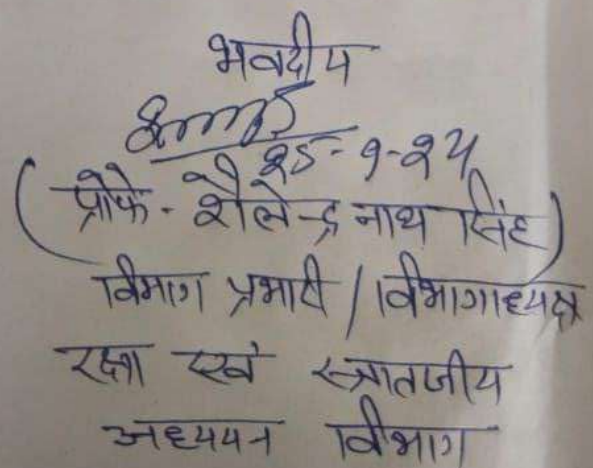 भवदीय
25-9-24
(प्रोफे - शैलेन्द्र नाथ सिंह)
विभाग प्रभारी / विभागाध्यक्ष
रक्षा एवं स्त्रातजीय
अध्ययन विभाग